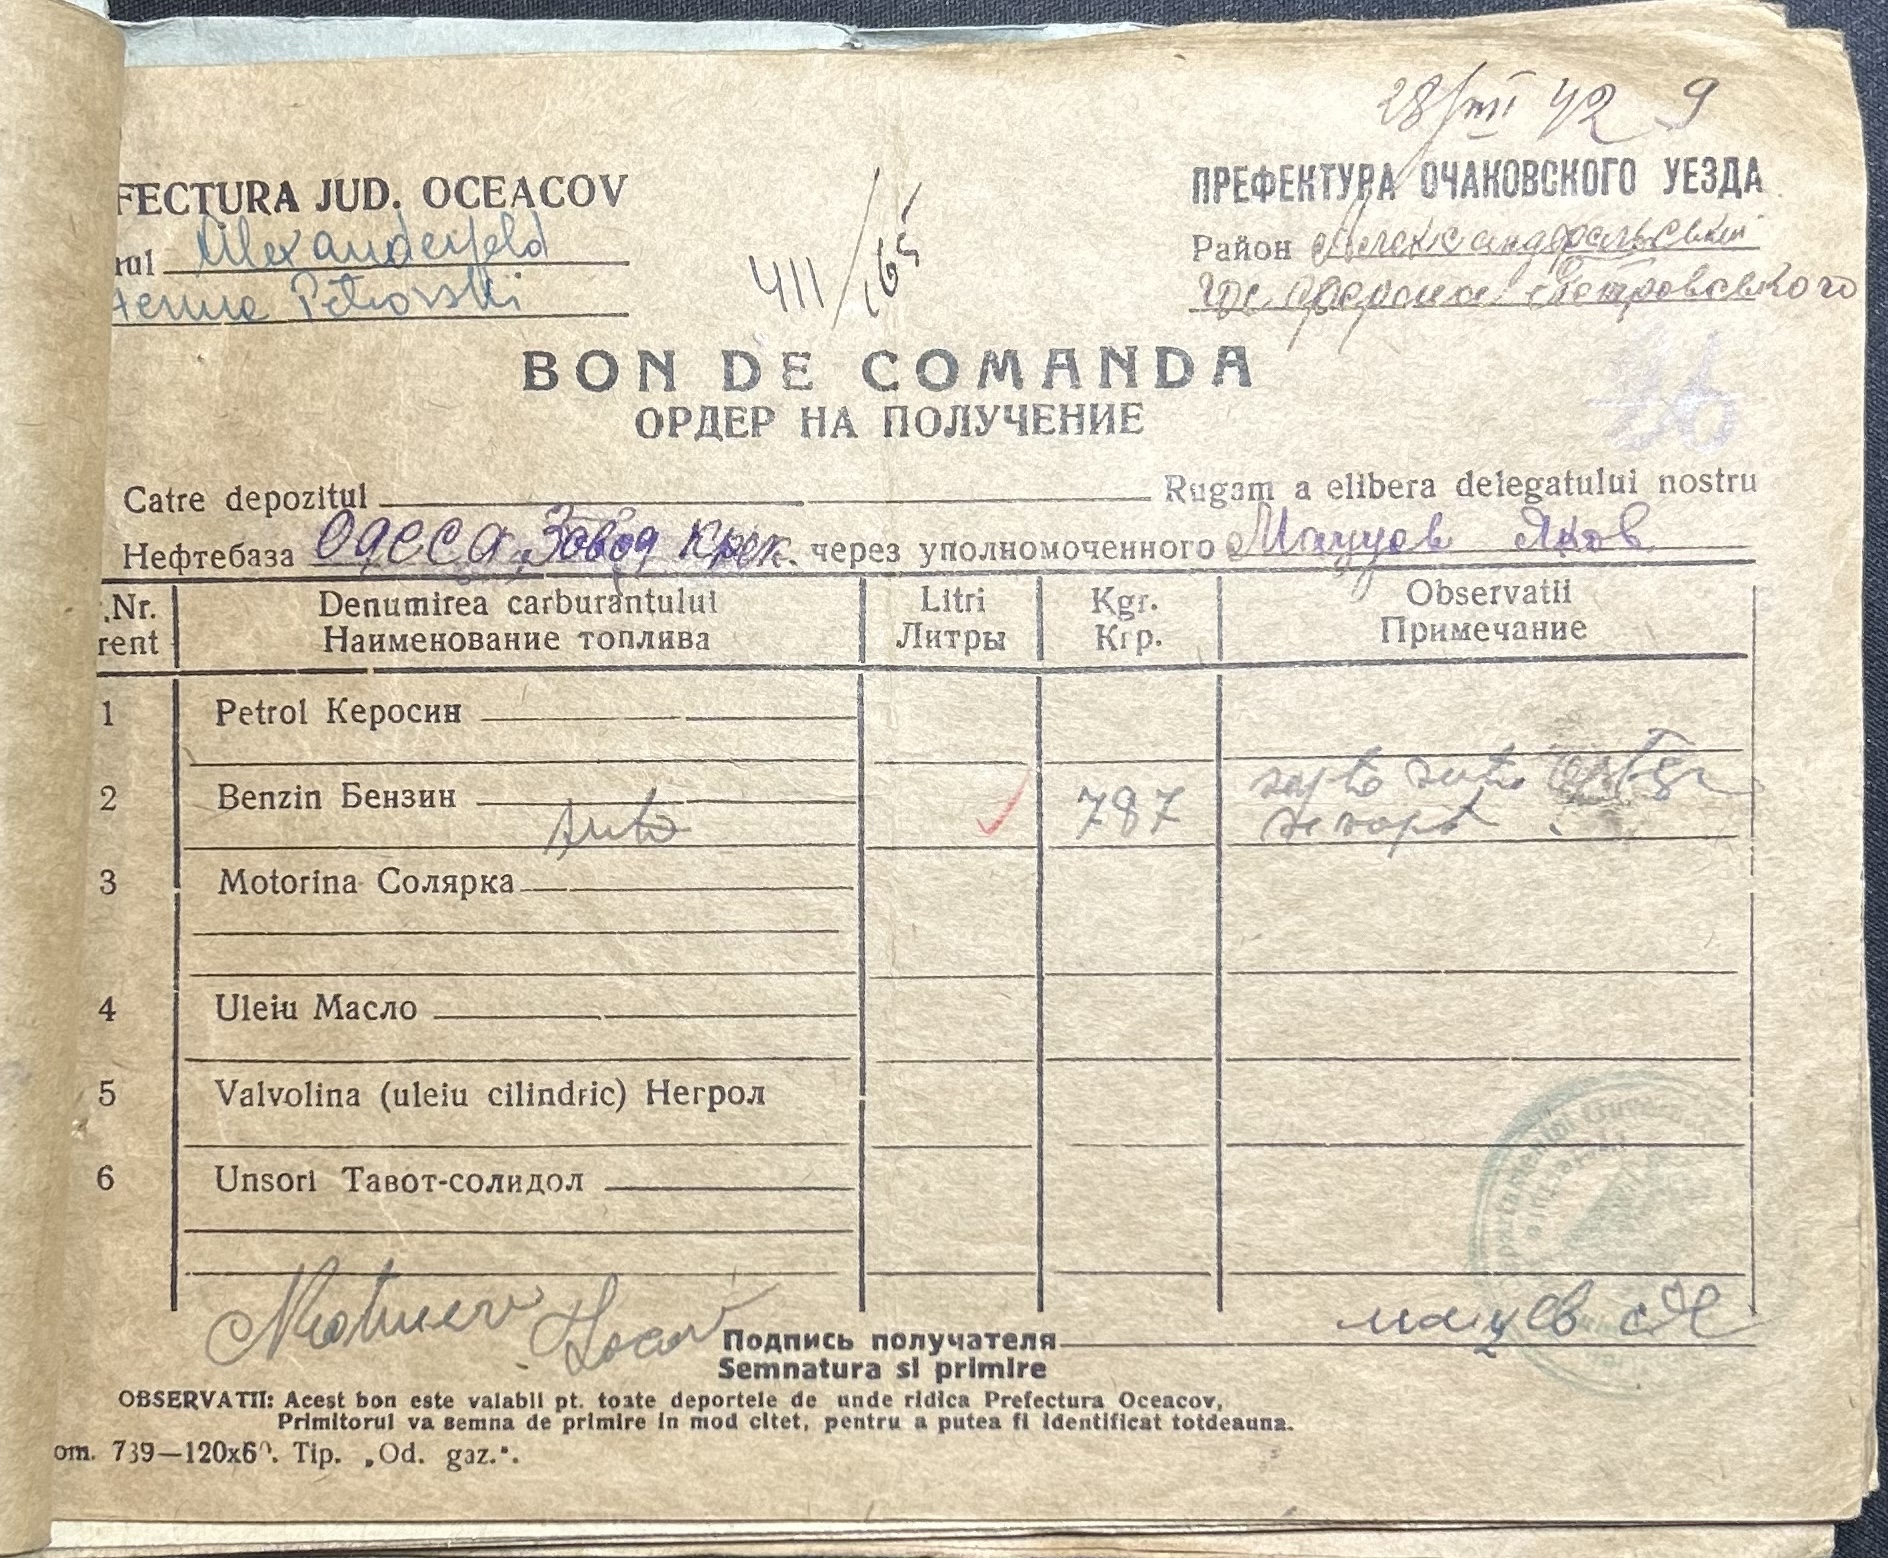 28/VIII 42 9
FECTURA JUD. OCEACOV
ПРЕФЕКТУРА ОЧАКОВСКОГО УЕЗДА
Alexanderfeld
Район Александерфельський
Petrovski
411/165
Петровского
BON DE COMANDA
ОРДЕР НА ПОЛУЧЕНИЕ
Catre depozitul Rugam a elibera delegatului nostru
Нефтебаза Одеса, Завод Крек. через уполномоченного Мацуев Яков
.Nr. Denumirea carburantului Litri Kgr. Observatii
rent Наименование топлива Литры Кгр. Примечание
1 Petrol Керосин
2 Benzin Бензин 787 sapte sute
auto
3 Motorina Солярка
4 Uleiu Масло
5 Valvolina (uleiu cilindric) Негрол
6 Unsori Тавот-солидол
Подпись получателя мацуев Я
Semnatura si primire
OBSERVATII: Acest bon este valabil pt. toate deportele de unde ridica Prefectura Oceacov,
Primitorul va semna de primire in mod citet, pentru a putea fi identificat totdeauna.
om. 739—120x60. Tip. „Od. gaz.".